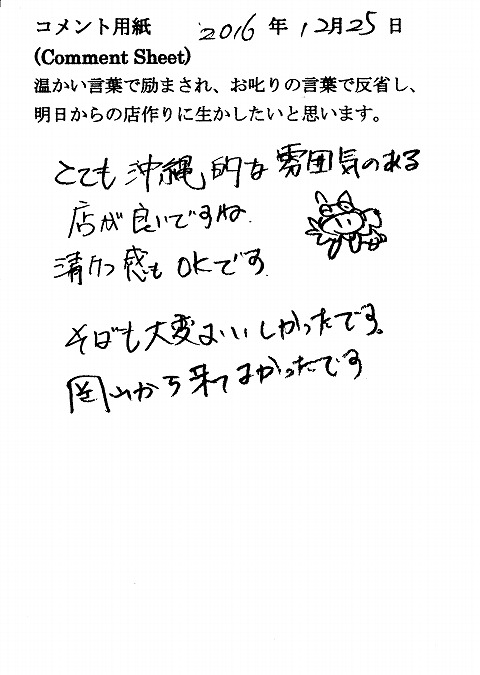 コメント用紙 2016 年 12月25日
(Comment Sheet)
温かい言葉で励まされ、お叱りの言葉で反省し、
明日からの店作りに生かしたいと思います。
とても沖縄的な雰囲気のある
店が良いですね.
清ケツ感もOKです.
そばも大変おいしかったです。
岡山から来てよかったです